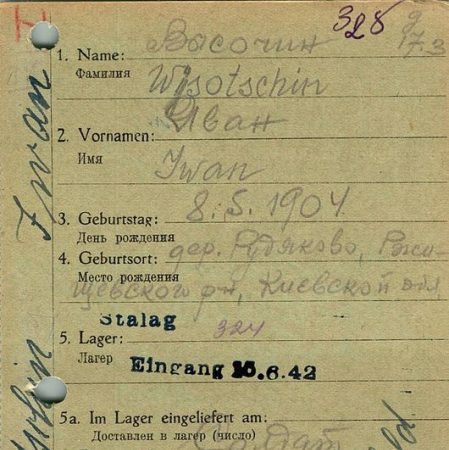 H
328
17.3
1. Name: Васочин
Фамилия Wisotschin
Иван
2. Vornamen:
Имя
Iwan
3. Geburtstag: 8.5.1904
День рождения
4. Geburtsort: дер. Рудяково, Ржи-
Место рождения
щевского рн, Киевской обл
Stalag
5. Lager: 324
Лагер
Eingang 15.6.42
5a. Im Lager eingeliefert am:
Доставлен в лагер (число)
Солдат
Iwan